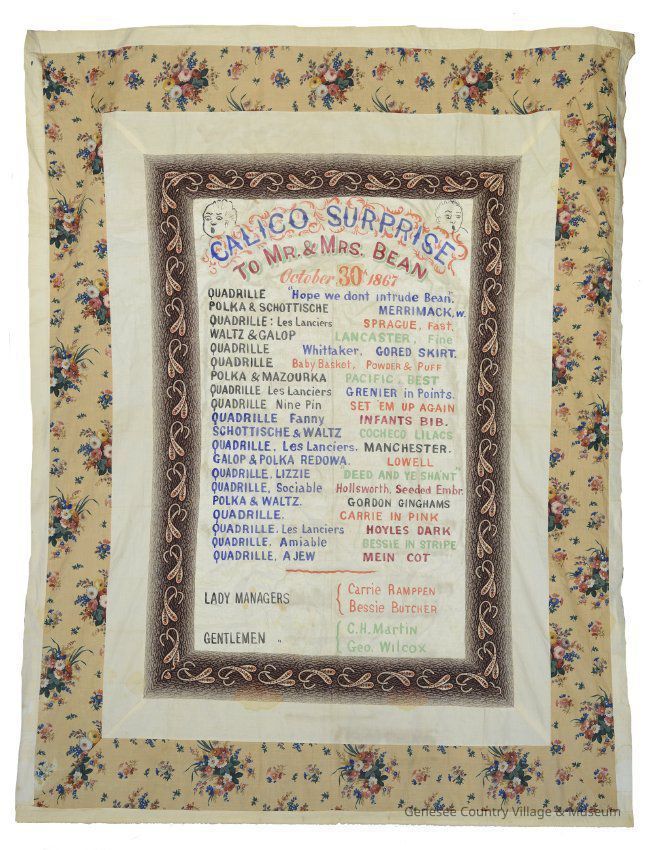 CALICO SURPRISE
TO MR. & MRS. BEAN
October 30th 1867
QUADRILLE "Hope we dont intrude Bean".
POLKA & SCHOTTISCHE MERRIMACK, W.
QUADRILLE: Les Lanciers SPRAGUE, Fast.
WALTZ & GALOP LANCASTER, Fine
QUADRILLE Whittaker, GORED SKIRT.
QUADRILLE Baby Basket, POWDER & PUFF
POLKA & MAZOURKA PACIFIC, BEST
QUADRILLE Les Lanciers GRENIER in Points.
QUADRILLE Nine Pin SET 'EM UP AGAIN
QUADRILLE Fanny INFANTS BIB.
SCHOTTISCHE & WALTZ COCHECO LILACS
QUADRILLE, Les Lanciers. MANCHESTER.
GALOP & POLKA REDOWA. LOWELL
QUADRILLE, LIZZIE DEED AND YE SHAN'T"
QUADRILLE, Sociable Hollsworth, Seeded Embr.
POLKA & WALTZ. GORDON GINGHAMS
QUADRILLE. CARRIE IN PINK
QUADRILLE. Les Lanciers HOYLES DARK
QUADRILLE, Amiable BESSIE IN STRIPE
QUADRILLE, A JEW MEIN COT
LADY MANAGERS
Carrie RAMPPEN
Bessie BUTCHER
GENTLEMEN "
C.H. Martin
Geo. Wilcox
Genesee Country Village & Museum